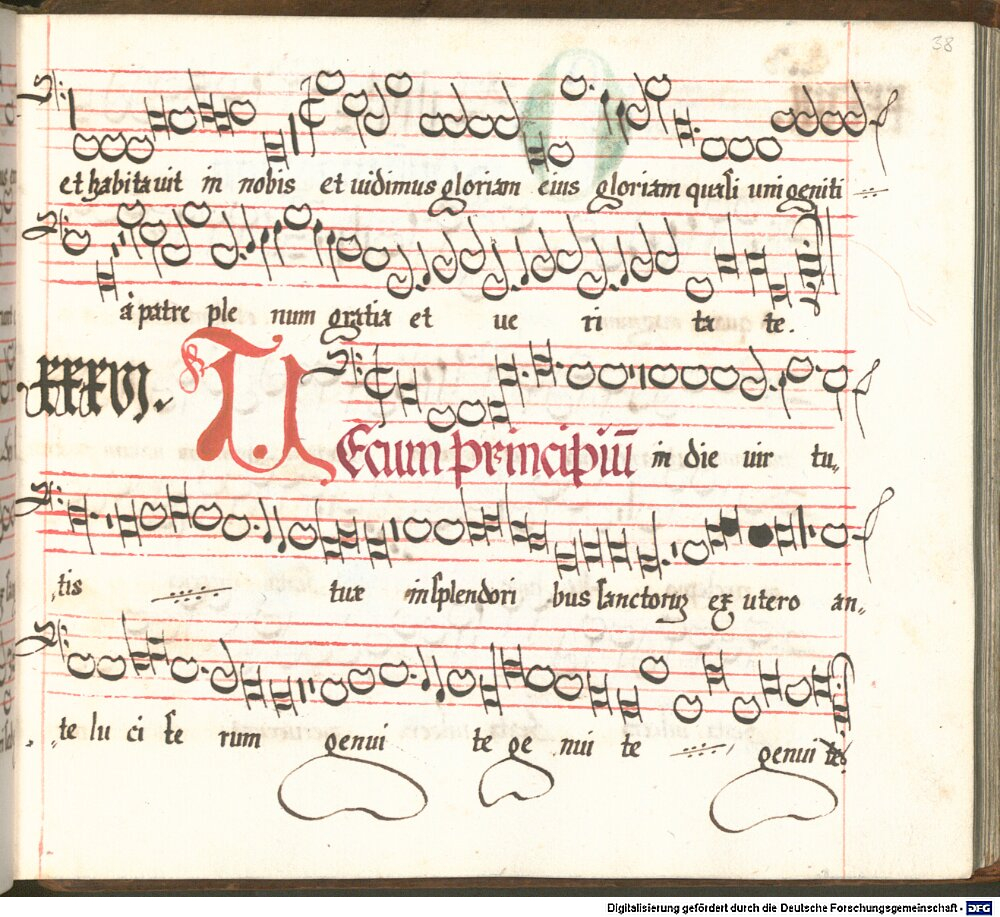 38
et habitauit in nobis et uidimus gloriam eius gloriam quasi unigeniti
á patre ple num gratia et ue ri ta te.
XXXVI.
TEcum principiū in die uir tu„
„tis tuæ in splendori bus sanctorum ex utero an„
„te lu ci fe rum genui te ge nui te genui te.
Digitalisierung gefördert durch die Deutsche Forschungsgemeinschaft - DFG